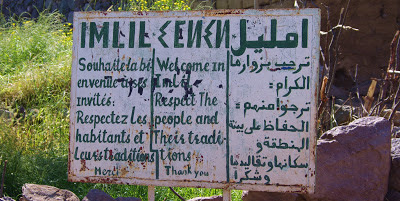 IMLIL امليل
Souhaite la bi
envenue à ses
Invités:
Respectez les
habitants et
Leurs traditions
Merci
Welcome in
Imlil
Respect The
people and
Their tradi
tions
Thank you
ترحب بزوارها
الكرام:
ترجوا منهم:
الحفاظ على بيئة
المنطقة و
سكانها وتقاليدها
وشكرا